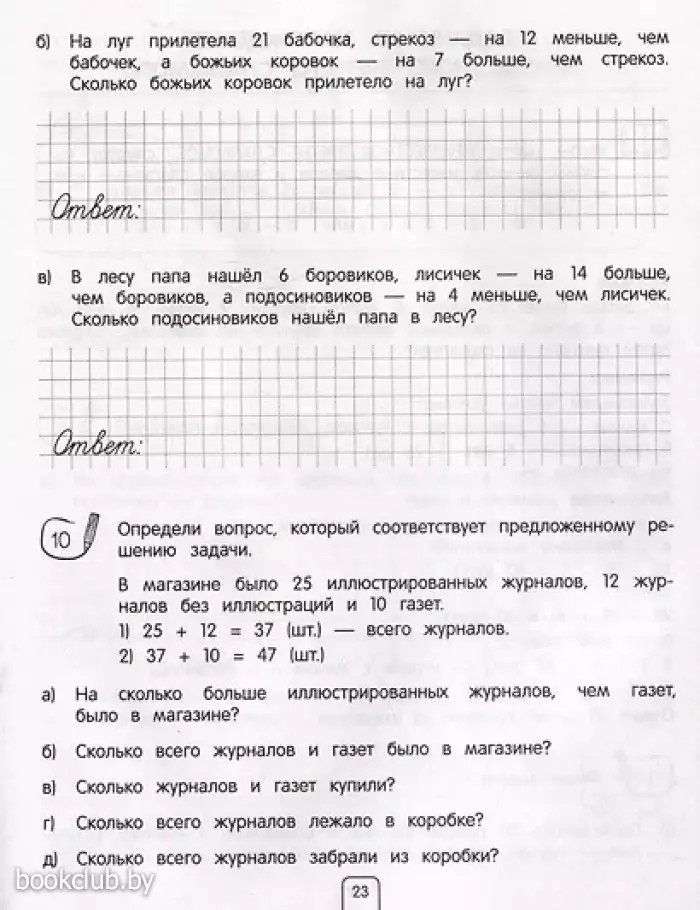 б) На луг прилетела 21 бабочка, стрекоз — на 12 меньше, чем
бабочек, а божьих коровок — на 7 больше, чем стрекоз.
Сколько божьих коровок прилетело на луг?
Ответ:
в) В лесу папа нашёл 6 боровиков, лисичек — на 14 больше,
чем боровиков, а подосиновиков — на 4 меньше, чем лисичек.
Сколько подосиновиков нашёл папа в лесу?
Ответ:
10 Определи вопрос, который соответствует предложенному ре-
шению задачи.
В магазине было 25 иллюстрированных журналов, 12 жур-
налов без иллюстраций и 10 газет.
1) 25 + 12 = 37 (шт.) — всего журналов.
2) 37 + 10 = 47 (шт.)
а) На сколько больше иллюстрированных журналов, чем газет,
было в магазине?
б) Сколько всего журналов и газет было в магазине?
в) Сколько журналов и газет купили?
г) Сколько всего журналов лежало в коробке?
д) Сколько всего журналов забрали из коробки?
bookclub.by
23